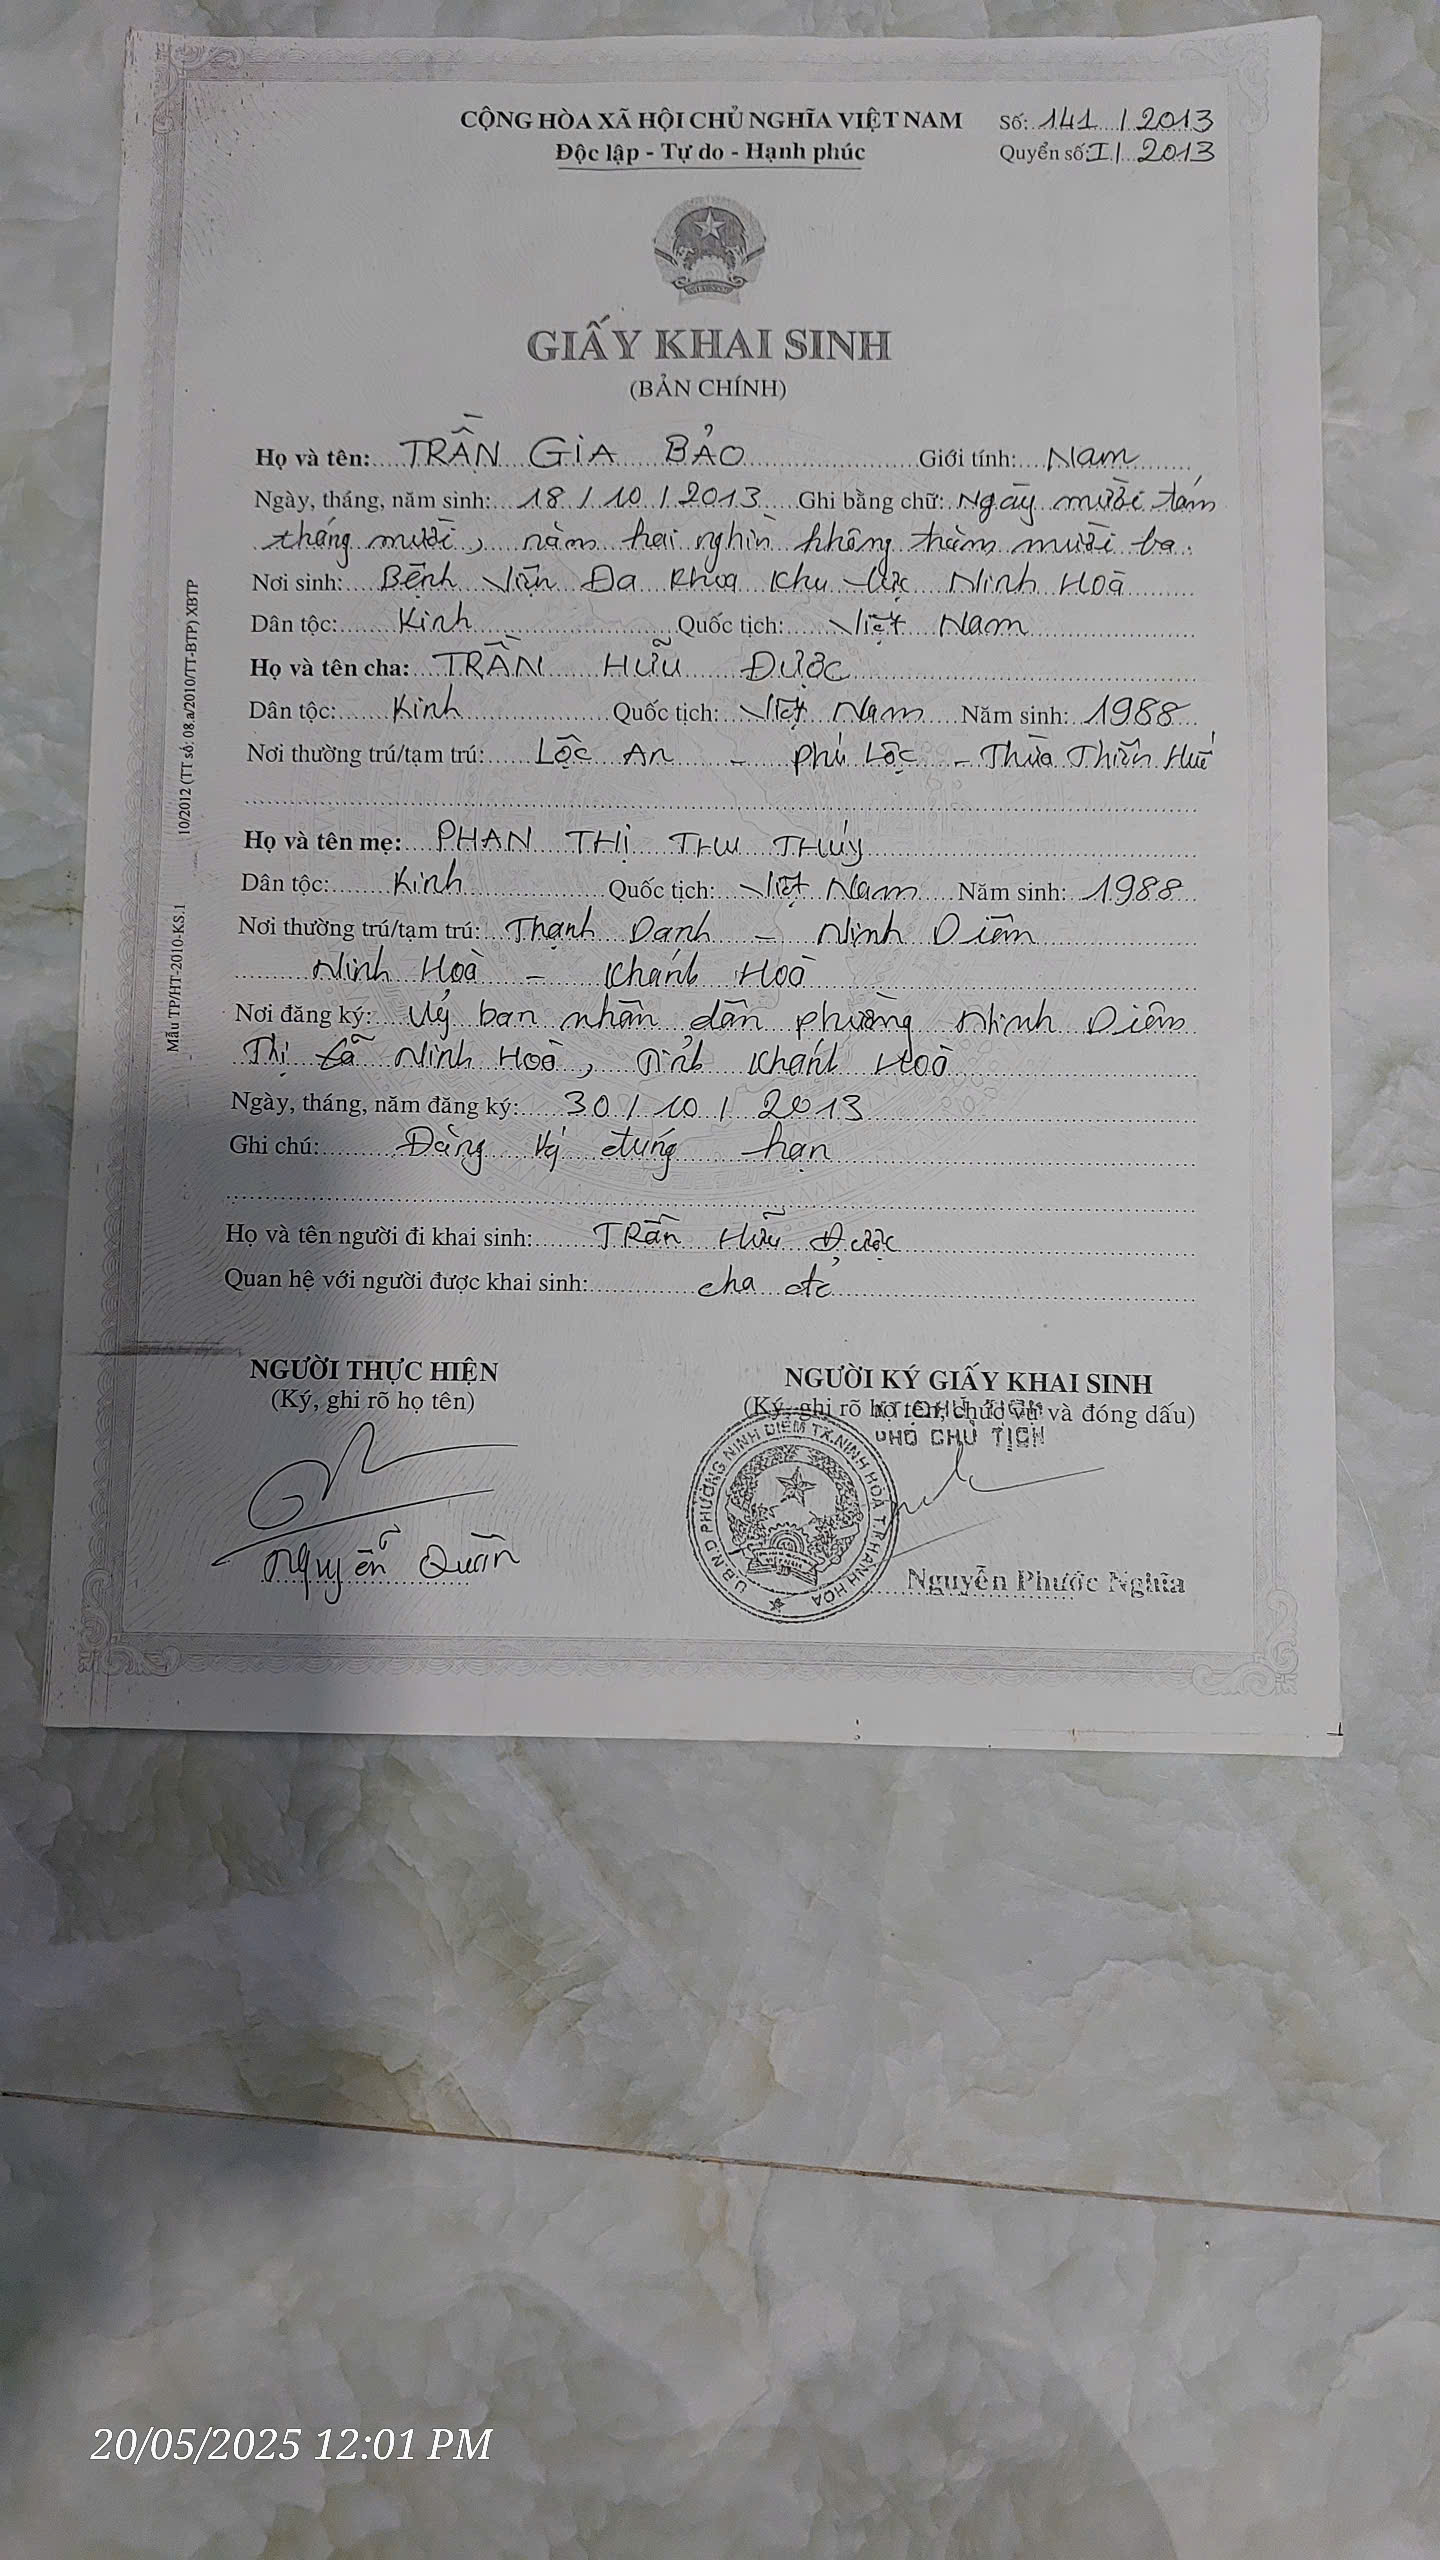 CỘNG HÒA XÃ HỘI CHỦ NGHĨA VIỆT NAM Số: 141 / 2013
Độc lập - Tự do - Hạnh phúc Quyển số: I / 2013
GIẤY KHAI SINH
(BẢN CHÍNH)
Họ và tên: TRẦN GIA BẢO Giới tính: Nam
Ngày, tháng, năm sinh: 18 / 10 / 2013 Ghi bằng chữ: Ngày mười tám
tháng mười, năm hai nghìn không trăm mười ba.
Nơi sinh: Bệnh viện Đa khoa khu vực Ninh Hoà
Dân tộc: Kinh Quốc tịch: Việt Nam
Họ và tên cha: TRẦN HỮU ĐƯỢC
Dân tộc: Kinh Quốc tịch: Việt Nam Năm sinh: 1988
Nơi thường trú/tạm trú: Lộc An - Phú Lộc - Thừa Thiên Huế
Họ và tên mẹ: PHAN THỊ THU THÚY
Dân tộc: Kinh Quốc tịch: Việt Nam Năm sinh: 1988
Nơi thường trú/tạm trú: Thạnh Danh - Ninh Diêm
Ninh Hoà - Khánh Hoà
Nơi đăng ký: Uỷ ban nhân dân phường Ninh Diêm
Thị xã Ninh Hoà, Tỉnh Khánh Hoà
Ngày, tháng, năm đăng ký: 30 / 10 / 2013
Ghi chú: Đăng ký đúng hạn
Họ và tên người đi khai sinh: Trần Hữu Được
Quan hệ với người được khai sinh: cha đẻ
NGƯỜI THỰC HIỆN
(Ký, ghi rõ họ tên)
Nguyễn Quân
NGƯỜI KÝ GIẤY KHAI SINH
(Ký, ghi rõ họ tên, chức vụ và đóng dấu)
KT.CHỦ TỊCH
PHÓ CHỦ TỊCH
U.B.N.D PHƯỜNG NINH DIÊM TX.NINH HOÀ T.KHÁNH HÒA
Nguyễn Phước Nghĩa
Mẫu TP/HT-2010-KS.1 10/2012 (TT số: 08.a/2010/TT-BTP) XBTP
20/05/2025 12:01 PM